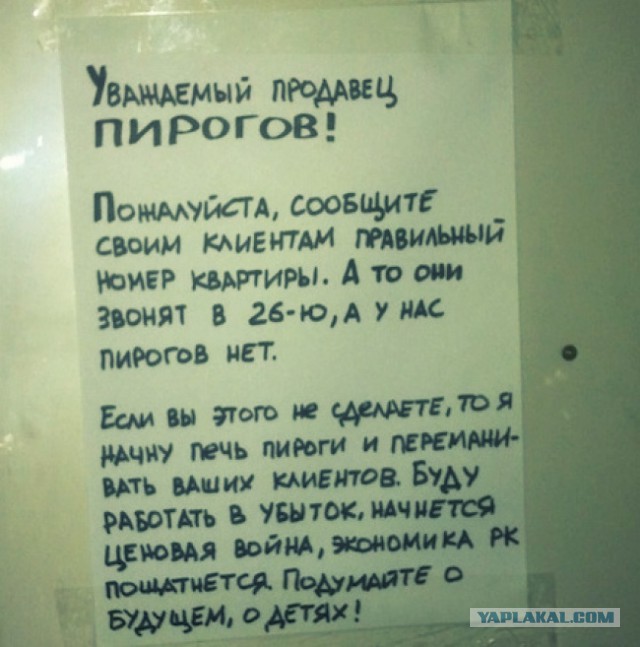 Уважаемый продавец
ПИРОГОВ!
Пожалуйста, сообщите
своим клиентам правильный
номер квартиры. А то они
звонят в 26-ю, а у нас
пирогов нет.
Если вы этого не сделаете, то я
начну печь пироги и перемани-
вать ваших клиентов. Буду
работать в убыток, начнется
ценовая война, экономика РК
пошатнется. Подумайте о
будущем, о детях!
YAPLAKAL.COM